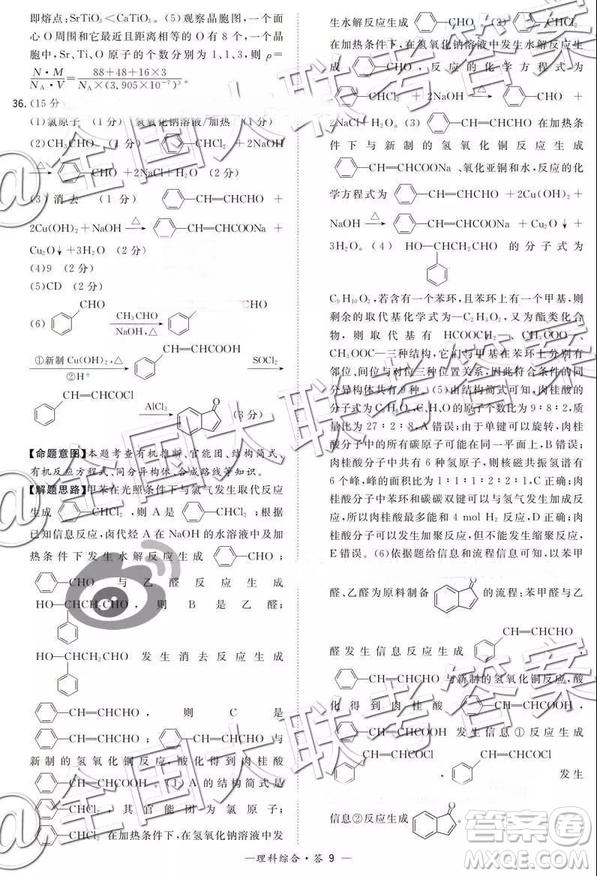 即熔点：SrTiO₃＜CaTiO₃。(5)观察晶胞图，一个面
心 O 周围和它最近且距离相等的 O 有 8 个，一个晶
胞中，Sr、Ti、O 原子的个数分别为 1、1、3，则 ρ＝
N·M/(N_A·V)＝(88＋48＋16×3)/(N_A×(3.905×10⁻⁷)³)。
36.(15 分)
(1)氯原子 (1 分) 氢氧化钠溶液/加热 (1 分)
(2)CH₃CHO (1 分) CHCl₂＋2NaOH
△→ CHO＋2NaCl＋H₂O (2 分)
(3)消去 (1 分) CH═CHCHO＋
2Cu(OH)₂＋NaOH △→ CH═CHCOONa＋
Cu₂O↓＋3H₂O (2 分)
(4)9 (2 分)
(5)CD (2 分)
(6) CHO CH₃CHO/NaOH,△→ CH═CHCHO
①新制 Cu(OH)₂,△ ②H⁺→ CH═CHCOOH SOCl₂→
CH═CHCOCl AlCl₃→ O (3 分)
【命题意图】本题考查有机推断、官能团、结构简式、
有机反应方程式、同分异构体、合成路线等知识。
【解题思路】甲苯在光照条件下与氯气发生取代反应
生成 CHCl₂，则 A 是 CHCl₂；根据
已知信息反应，卤代烃 A 在 NaOH 的水溶液中及加
热条件下发生水解反应生成 CHO；
CHO 与乙醛反应生成
HO—CHCH₂CHO，则 B 是乙醛；
HO—CHCH₂CHO 发生消去反应生成
CH═CHCHO，则 C 是
CH═CHCHO；CH═CHCHO 与
新制的氢氧化铜反应、酸化得到肉桂酸
CH═CHCOOH。(1)A 的结构简式是
CHCl₂，其官能团为氯原子；
CHCl₂ 在加热条件下，在氢氧化钠溶液中发
生水解反应生成 CHO。(2) CHCl₂
在加热条件下，在氢氧化钠溶液中发生水解反应生成
CHO，反应的化学方程式为
CHCl₂＋2NaOH △→ CHO＋
2NaCl＋H₂O。(3) CH═CHCHO 在加热条件
下与新制的氢氧化铜反应，生成
CH═CHCOONa、氧化亚铜和水，反应的化
学方程式为 CH═CHCHO＋2Cu(OH)₂＋
NaOH △→ CH═CHCOONa＋Cu₂O↓＋
3H₂O。(4) HO—CHCH₂CHO 的分子式为
C₉H₁₀O₂，若含有一个苯环，且苯环上有一个甲基，则
剩余的取代基化学式为—C₂H₃O₂，又为酯类化合
物，则取代基有 HCOOCH₂—、CH₃COO—、
CH₃OOC—三种结构，它们与甲基在苯环上分别有
邻位、间位与对位三种位置关系，因此符合条件的同
分异构体共有 9 种。(5)由结构简式可知，肉桂酸
的分子式为 C₉H₈O₂，C、H、O 原子的个数比为 9∶8∶2，
质量比为 27∶2∶8，A 错误；由于单键可以旋转，肉
桂酸分子中的所有碳原子可能在同一平面上，B 错
误；肉桂酸分子中共有 6 种氢原子，则核磁共振氢谱有
6 个峰，峰面积之比为 1∶1∶1∶2∶2∶1，C 正确；肉桂
酸分子中苯环和碳碳双键可以与氢气发生加成反
应，所以肉桂酸最多能和 4 mol H₂ 反应，D 正确；肉
桂酸可以发生加聚反应，但不能发生缩聚反应，
E 错误。(6)依据题给信息和流程信息可知，以苯甲
醛、乙醛为原料制备 O 的流程：苯甲醛与乙
醛发生信息反应生成 CH═CHCHO，
CH═CHCHO 与新制的氢氧化铜反应，酸
化得到肉桂酸 CH═CHCOOH，
CH═CHCOOH 发生信息①反应生成
CH═CHCOCl，CH═CHCOCl 发生
信息②反应生成 O。
—理科综合·答 9—
@全国大联考答案
答案圈
MXQE.COM